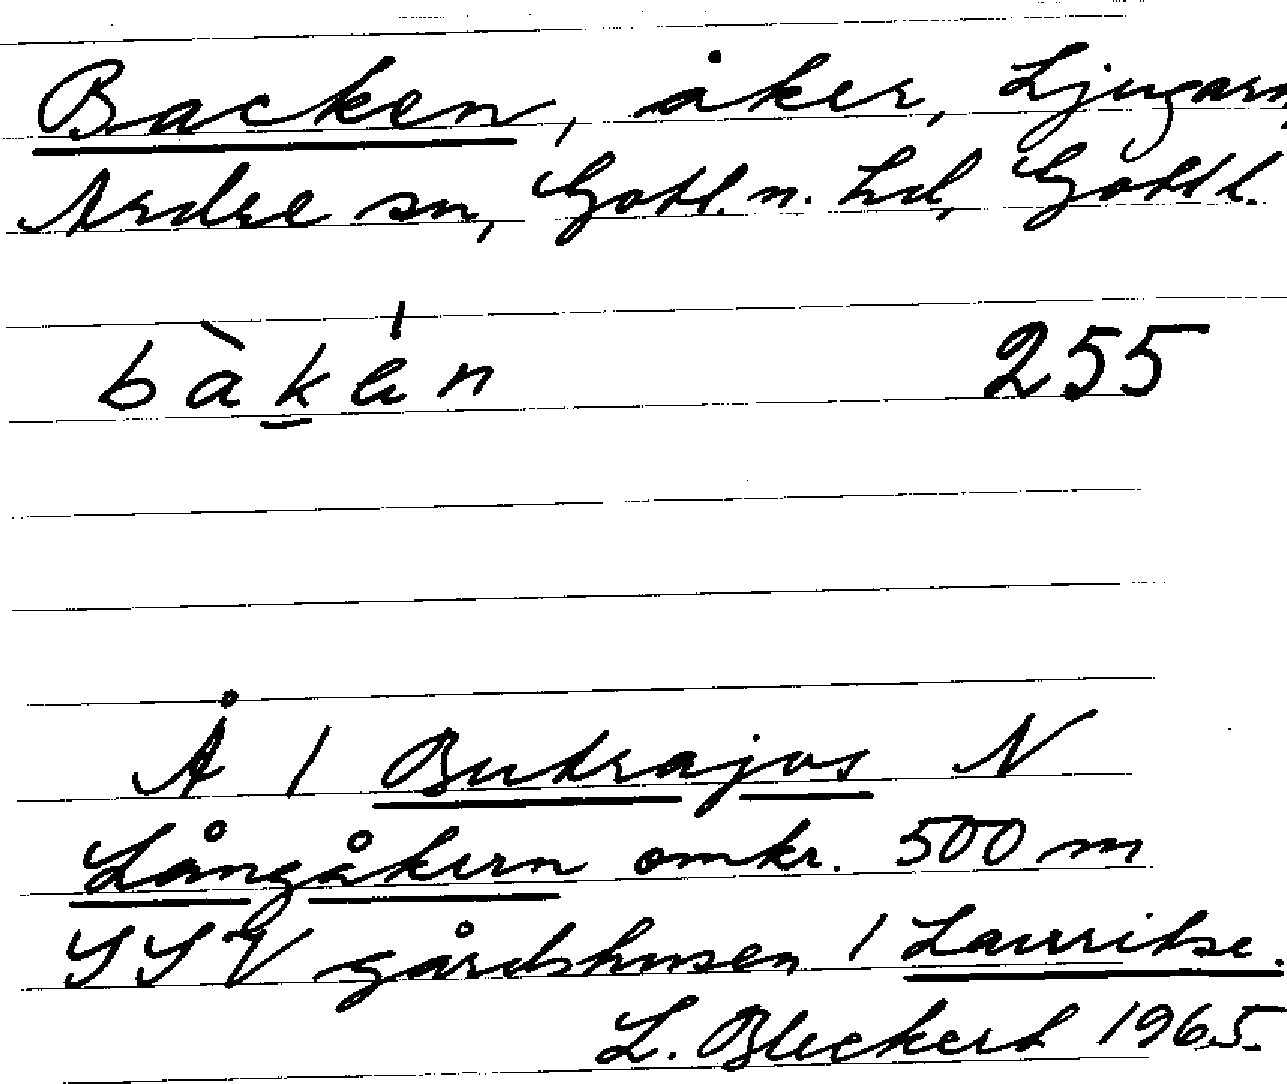 Backen, åker, Ljugarn,
Ardre sn, Gotl. n. hd, Gottl.
bàkän 255
Å i Butrajvs N
Långåkern omkr. 500 m
SSV gårdshusen i Lauritse.
L. Bleckert 1965.